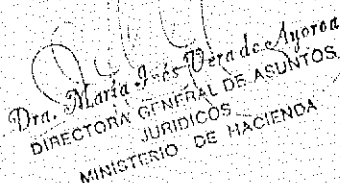 Dra. María Inés Vera de Ayoroa
DIRECTORA GENERAL DE ASUNTOS
JURIDICOS
MINISTERIO DE HACIENDA